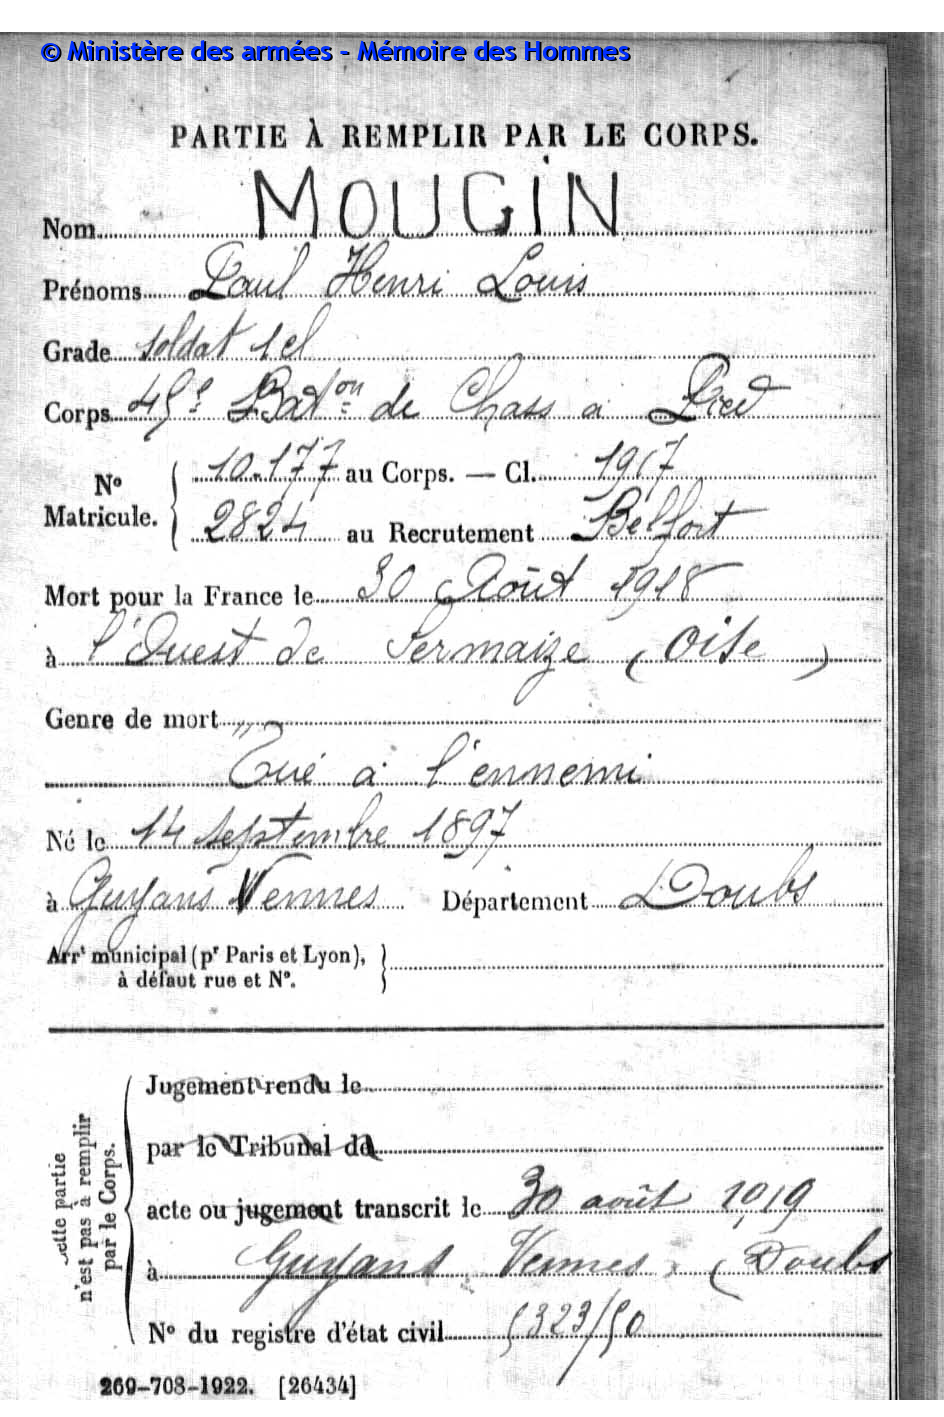 © Ministère des armées - Mémoire des Hommes
PARTIE À REMPLIR PAR LE CORPS.
Nom MOUGIN
Prénoms Paul Henri Louis
Grade soldat 1 cl
Corps 45e Baton de Chass à Pied
No Matricule. { 10.177 au Corps. — Cl. 1917
2824 au Recrutement Belfort
Mort pour la France le 30 Août 1918
à l'Ouest de Sermaize (Oise)
Genre de mort
Tué à l'ennemi
Né le 14 septembre 1897
à Guyans Vennes Département Doubs
Arrt municipal (pr Paris et Lyon), }
à défaut rue et No.
Cette partie n'est pas à remplir par le Corps.
Jugement rendu le
par le Tribunal de
acte ou jugement transcrit le 30 août 1919
à Guyans Vennes (Doubs
No du registre d'état civil 5323/50
269-708-1922. [26434]